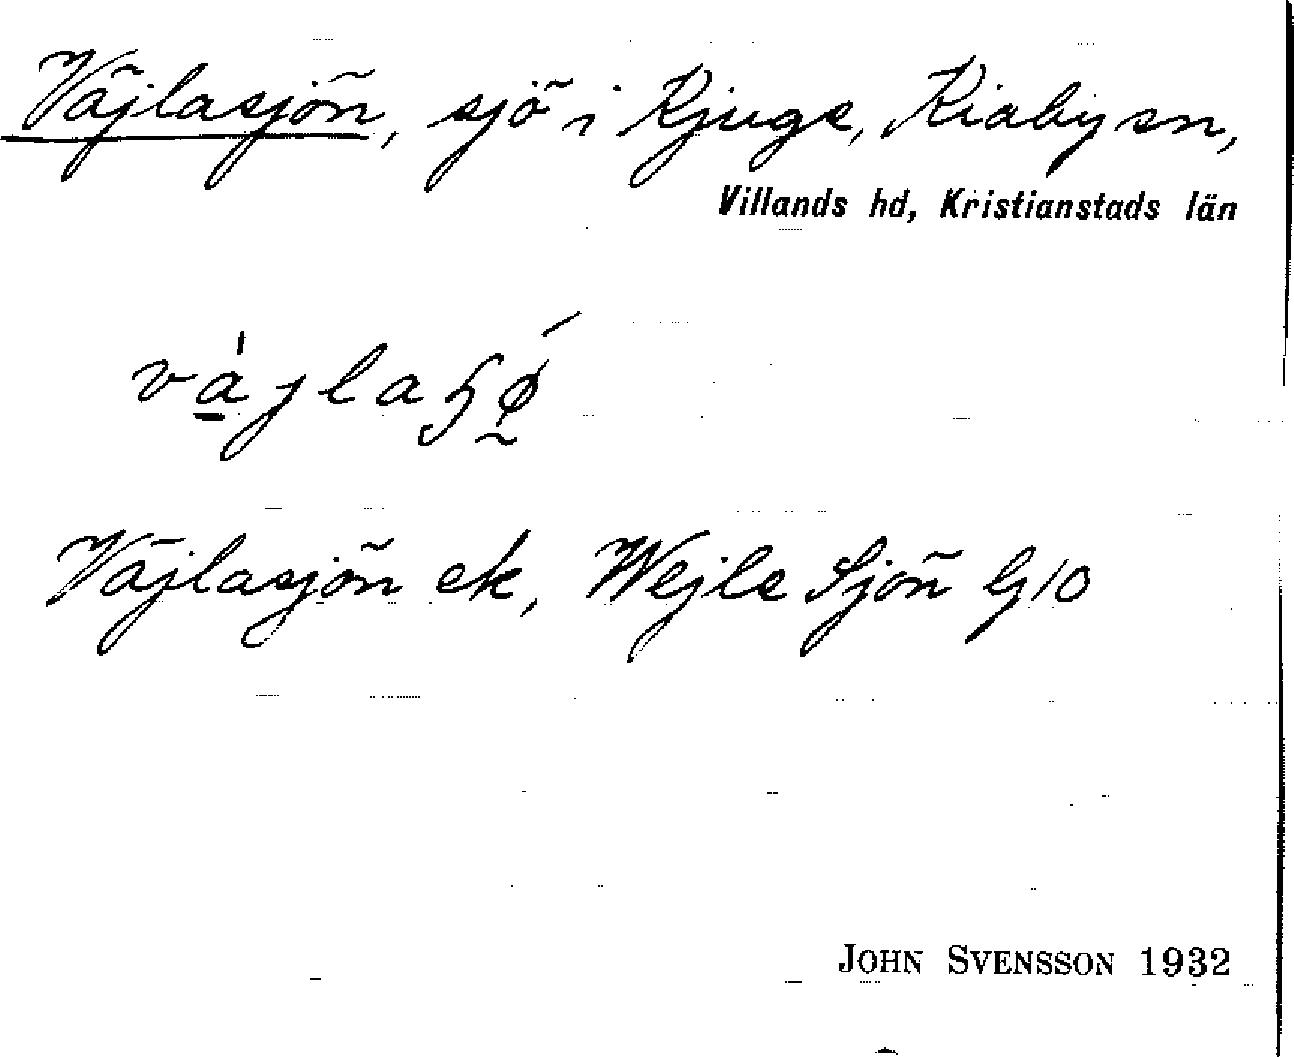 Väjlasjön, sjö i Kjuge, Kiaby sn,
Villands hd, Kristianstads län
Väjlasjön ek, Wejle Sjön G10
JOHN SVENSSON 1932